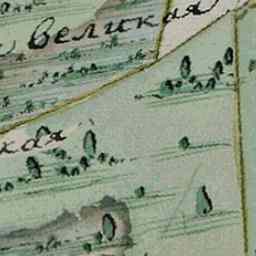 великая
кая